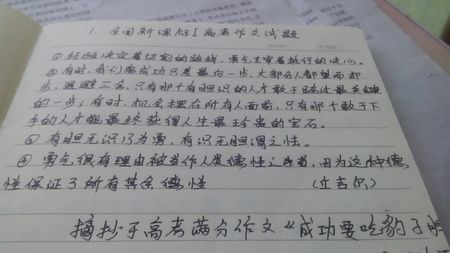 1 全国新课标I高考作文试题
①经验决定着切割的路线，勇气主宰着执行的决心。
②有时，我们离成功只差最后一步，大部分人都望而却
步，退避三舍，只有那个有胆识的人才敢于跨过最关键
的一步；有时，机会摆在所有人面前，只有那个敢于下
手的人才能最终获得人生最珍贵的宝石。
③有胆无识乃为勇，有识无胆谓之性。
④勇气很有理由被当作人类德性之首，因为这种德
性保证了所有其余德性 （丘吉尔）
摘抄于高考满分作文《成功要吃豹子胆